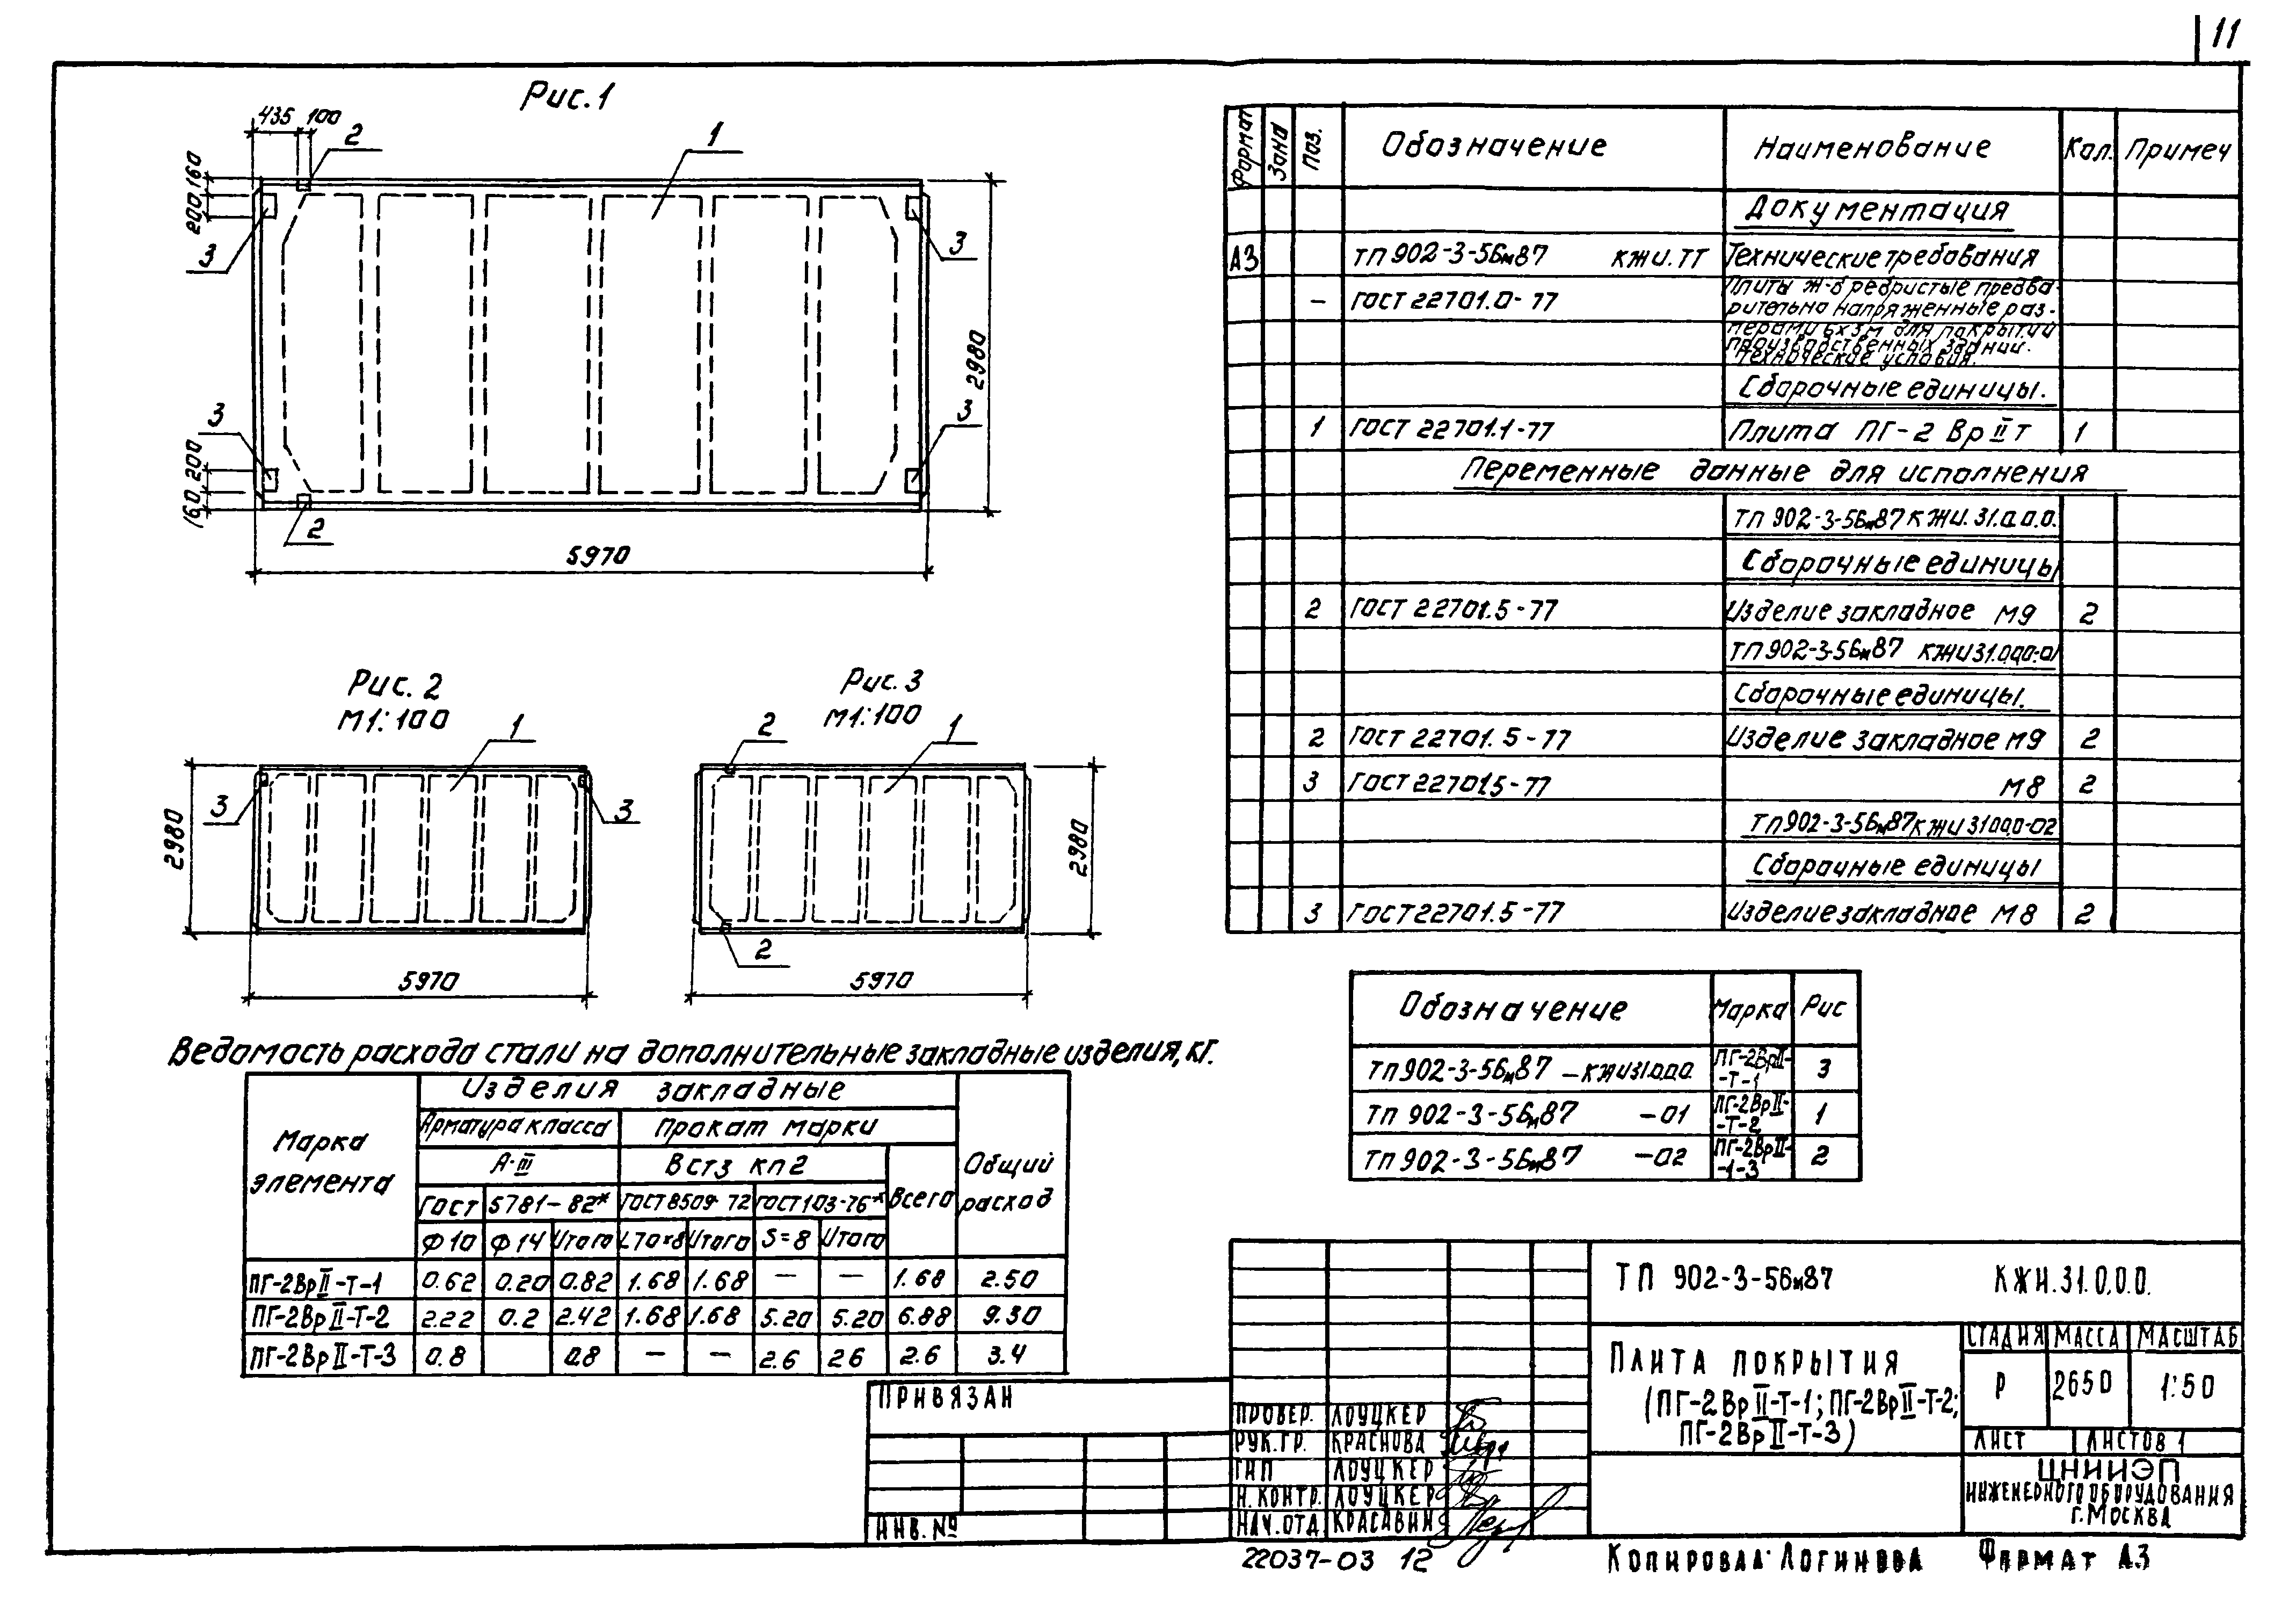 11
Рис.1
435 100
2
1
160
200
3
3
2980
3
3
200
160
2
5970
Рис. 2
М1:100
1
3
3
2980
5970
Рис. 3
М1:100
2
1
2980
2
5970
Формат Зона Поз. Обозначение Наименование Кол. Примеч
Документация
А3 ТП 902-3-56м87 КЖИ.ТТ Технические требования
— ГОСТ 22701.0-77 Плиты ж-б ребристые предва-
рительно напряженные раз-
мерами 6х3м для покрытий
производственных зданий.
Технические условия.
Сборочные единицы.
1 ГОСТ 22701.1-77 Плита ПГ-2 Вр II Т 1
Переменные данные для исполнения
ТП 902-3-56м87 КЖИ.31.0.0.0.
Сборочные единицы
2 ГОСТ 22701.5-77 Изделие закладное М9 2
ТП902-3-56м87 КЖИ31.0.0.0-01
Сборочные единицы.
2 ГОСТ 22701.5-77 Изделие закладное М9 2
3 ГОСТ 22701.5-77 М8 2
ТП902-3-56м87 КЖИ 31.0.0.0-02
Сборочные единицы
3 ГОСТ 22701.5-77 Изделие закладное М8 2
Обозначение Марка Рис
ТП902-3-56м87 -КЖИ31.0.0.0. ПГ-2ВрII-Т-1 3
ТП 902-3-56м87 -01 ПГ-2ВрII-Т-2 1
ТП 902-3-56м87 -02 ПГ-2ВрII-1-3 2
Ведомость расхода стали на дополнительные закладные изделия, кг.
Марка элемента Изделия закладные Общий расход
Арматура класса Прокат марки
А-III Вст3 кп2 Всего
ГОСТ 5781-82* ГОСТ8509-72 ГОСТ103-76*
Ф10 Ф14 Итого L70×8 Итого S=8 Итого
ПГ-2ВрII-Т-1 0.62 0.20 0.82 1.68 1.68 — — 1.68 2.50
ПГ-2ВрII-Т-2 2.22 0.2 2.42 1.68 1.68 5.20 5.20 6.88 9.30
ПГ-2ВрII-Т-3 0.8 0.8 — — 2.6 2.6 2.6 3.4
ПРИВЯЗАН
ИНВ. №
ТП 902-3-56м87 КЖИ.31.0.0.0.
ПЛИТА ПОКРЫТИЯ
(ПГ-2ВрII-Т-1; ПГ-2ВрII-Т-2;
ПГ-2ВрII-Т-3)
СТАДИЯ МАССА МАСШТАБ
Р 2650 1:50
ЛИСТ ЛИСТОВ 1
ЦНИИЭП
ИНЖЕНЕРНОГО ОБОРУДОВАНИЯ
Г.МОСКВА
ПРОВЕР. ЛОУЦКЕР
РУК.ГР. КРАСНОВА
ГИП ЛОУЦКЕР
Н.КОНТР. ЛОУЦКЕР
НАЧ.ОТД КРАСАВИН
22037-03 12
КОПИРОВАЛ: ЛОГИНОВА
ФОРМАТ А3